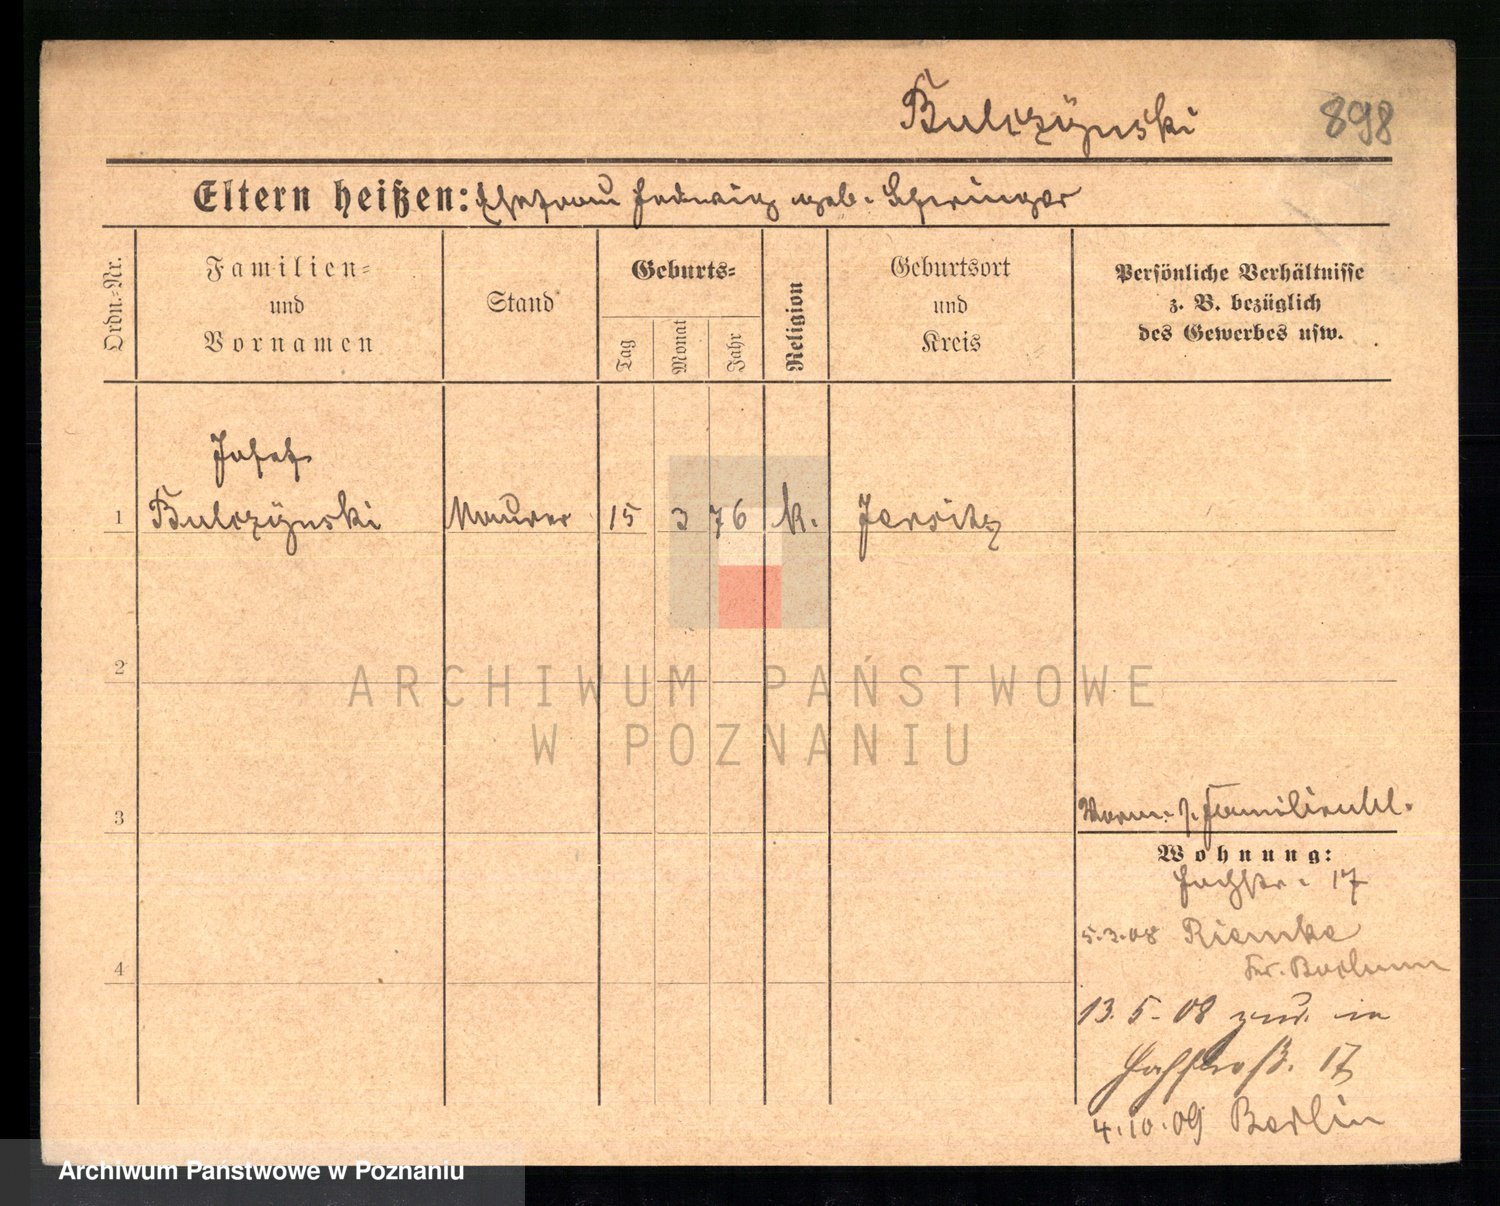 Bulczÿnski 898
Eltern heißen: Ehefrau Hedwig geb. Springer
Ordn.-Nr.
Familien-
und
Vornamen
Stand
Geburts-
Tag
Monat
Jahr
Religion
Geburtsort
und
Kreis
Persönliche Verhältnisse
z. B. bezüglich
des Gewerbes usw.
Josef
1 Bulczÿnski Maurer 15 3 76 k. Jersitz
2
ARCHIWUM PAŃSTWOWE
W POZNANIU
3
Familienbl.
Wohnung:
17
5.3.08 Riemke
Kr. Bochum
4
13.5.08 zur. in
17
4.10.09 Berlin
Archiwum Państwowe w Poznaniu